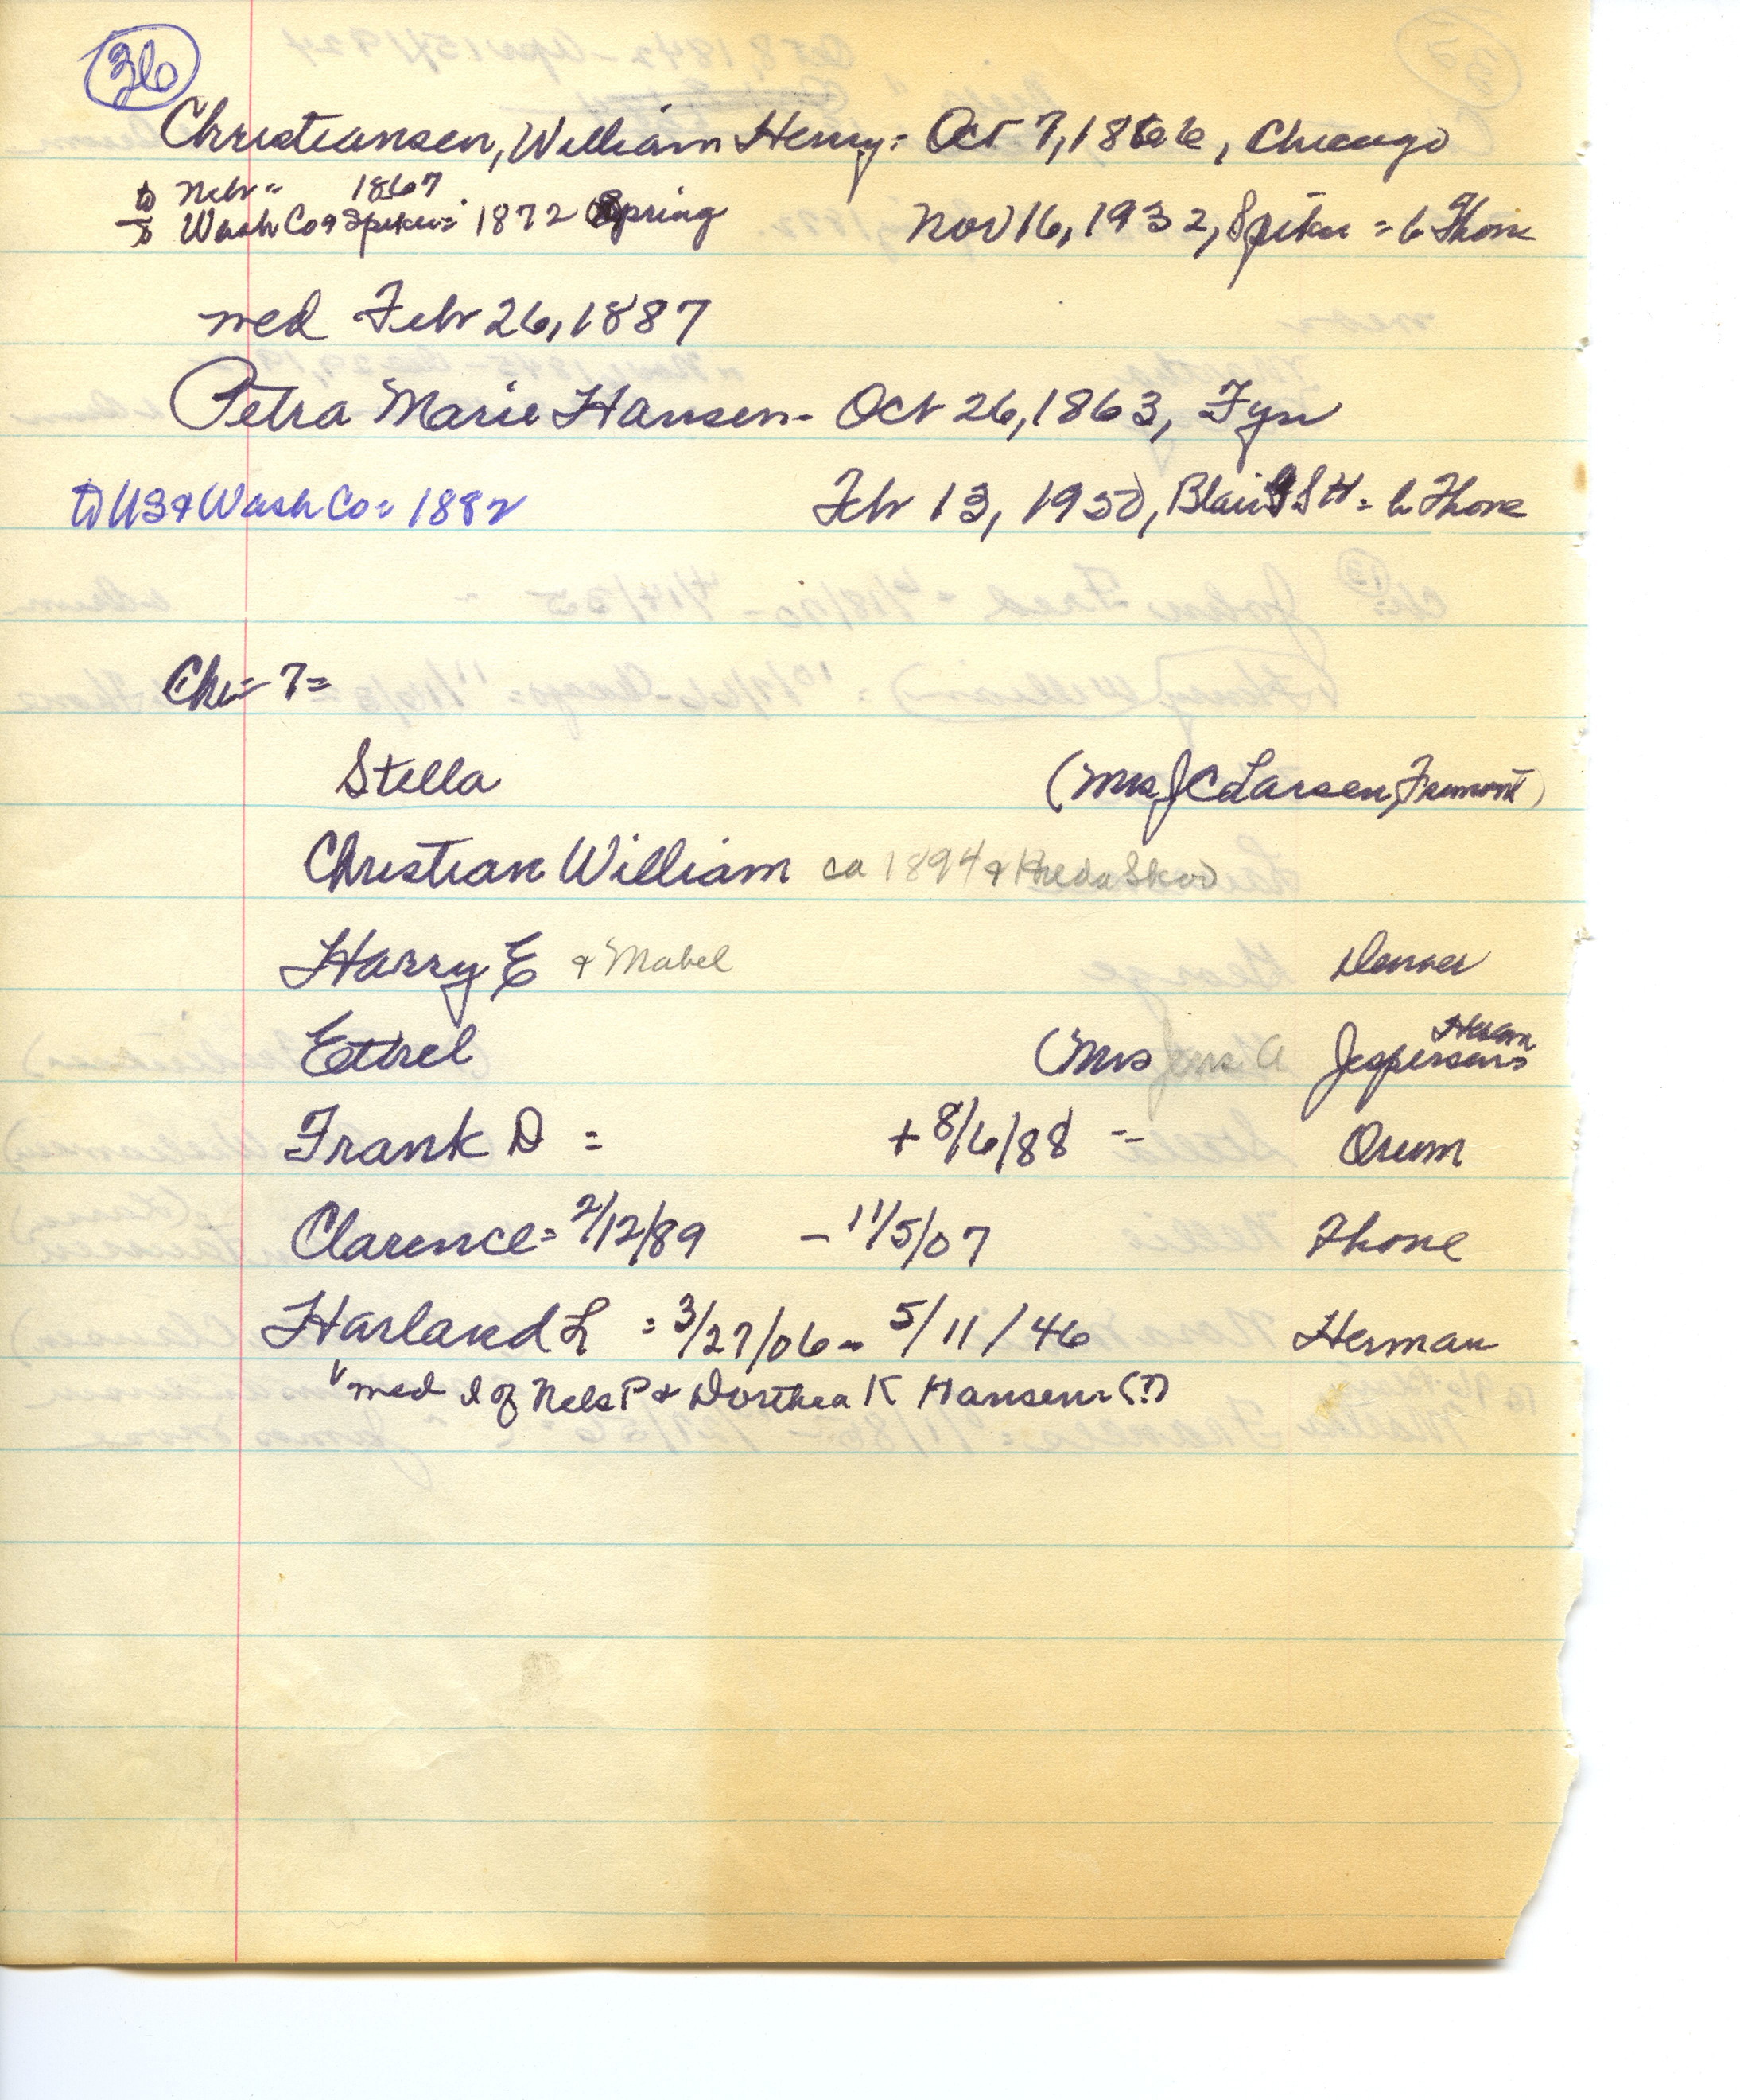 36
Christiansen, William Henry = Oct 7, 1866, Chicago
to Nebr = 1867
to Wash Co & Spiker = 1872 Spring Nov 16, 1932, Spiker = b Thone
med Febr 26, 1887
Petra Marie Hansen - Oct 26, 1863, Fyn
to US & Wash Co = 1882 Feb 13, 1950, Blair = b Thone
Chi = 7 =
Stella (Mrs J C Larsen, Fremont)
Christian William ca 1894 & Skov
Harry E & Mabel Denver
Ethel (Mrs Jens A Jespersen Herman
Frank D = + 8/6/88 - Orum
Clarence = 2/12/89 - 11/5/07 Thone
Harland L = 3/27/06 - 5/11/46 Herman
" med d of Nels P & Dorthea K Hansen (?)